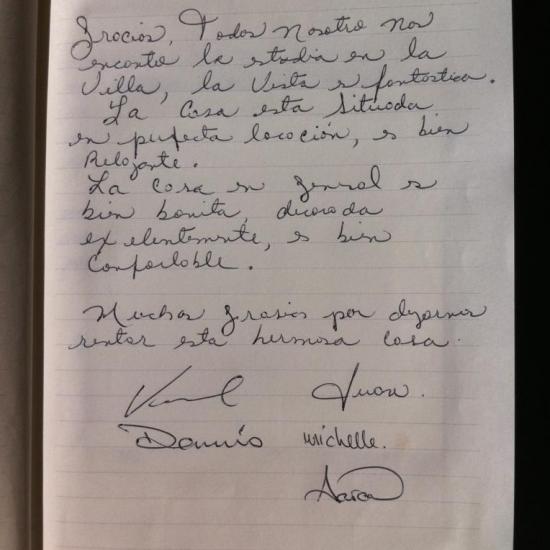 Gracias, Todos Nosotro nos
encanto la estadia en la
Villa, la Vista es fantastica.
La Casa esta Situada
en perfecta locación, es bien
Relajante.
La casa en general es
bien bonita, decorada
exelentemente, es bien
Confortable.
Muchas grasias por dejarnos
rentar esta hermosa casa.
Juan.
Dennis michelle.